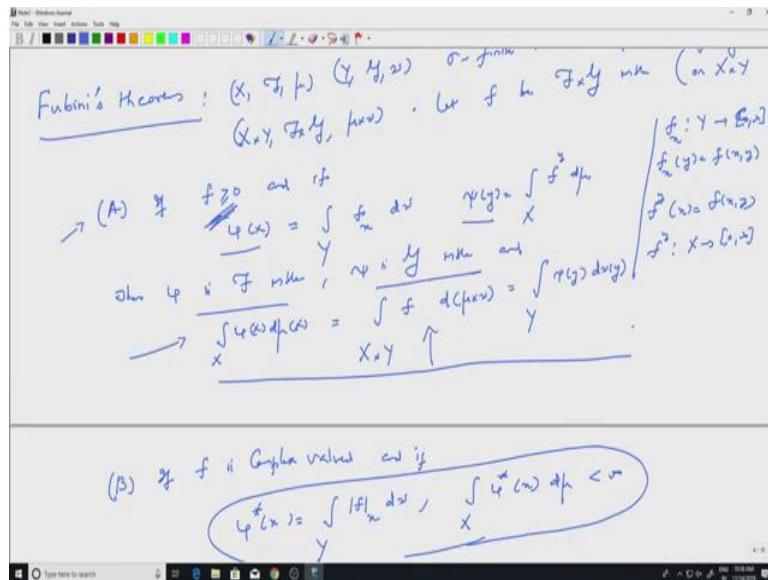 Note1 - Windows Journal
File Edit View Insert Actions Tools Help
Fubini's theorem : (X, F, μ) (Y, G, ν) σ-finite
(X×Y, F×G, μ×ν) . Let f be F×G mble (on X×Y
(A) If f ≥ 0 and if
φ(x) = ∫_Y f_x dν ψ(y) = ∫_X f^y dμ
f_x : Y → [0,∞]
f_x(y) = f(x,y)
f^y(x) = f(x,y)
f^y : X → [0,∞]
then φ is F mble, ψ is G mble and
∫_X φ(x) dμ(x) = ∫_{X×Y} f d(μ×ν) = ∫_Y ψ(y) dν(y)
(B) If f is Complex valued and if
φ*(x) = ∫_Y |f|_x dν , ∫_X φ*(x) dμ < ∞
Type here to search